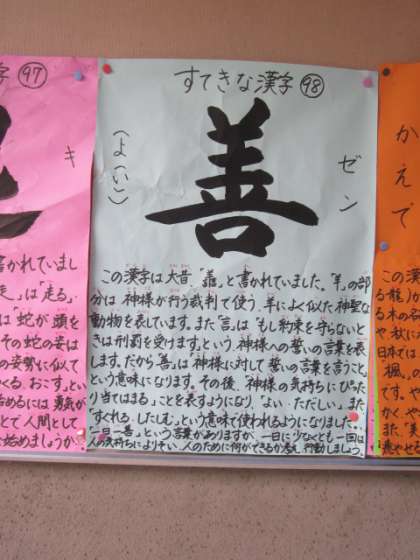 すてきな漢字 98
善
ゼン
(よ(い))
この漢字は大昔「譱」と書かれていました。「羊」の部
分は神様が行う裁判で使う、羊によく似た神聖な
動物を表しています。また「言」は「もし約束を守らないと
きは刑罰を受けます」という、神様への誓いの言葉を表
します。だから「善」は「神様に対して誓いの言葉を言うこと」
という意味になります。その後、神様の気持ちにぴった
り当てはまる」ことを表すようになり「よい・ただしい」、また
「すぐれる・したしむ」という意味で使われるようになりました。
「一日一善」という言葉がありますが、一日に少なくとも一回は
人の気持ちによりそい、人のために何ができるか考え、行動しましょう。
字 97
キ
書かれていまし
」は「走る」・
は蛇が頭を
その蛇の姿は
の姿勢に似て
くる・おこす」とい
始めるには勇気が
とで人間として
を始めましょうか
かえで
この漢
る龍)か
る木の名
や秋に
日本では
楓」の
です。や
かくか
また、「美